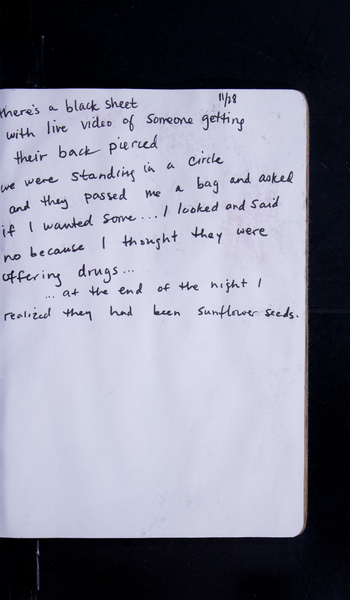 11/28
there's a black sheet
with live video of someone getting
their back pierced
we were standing in a circle
and they passed me a bag and asked
if I wanted some... I looked and said
no because I thought they were
offering drugs...
... at the end of the night I
realized they had been sunflower seeds.